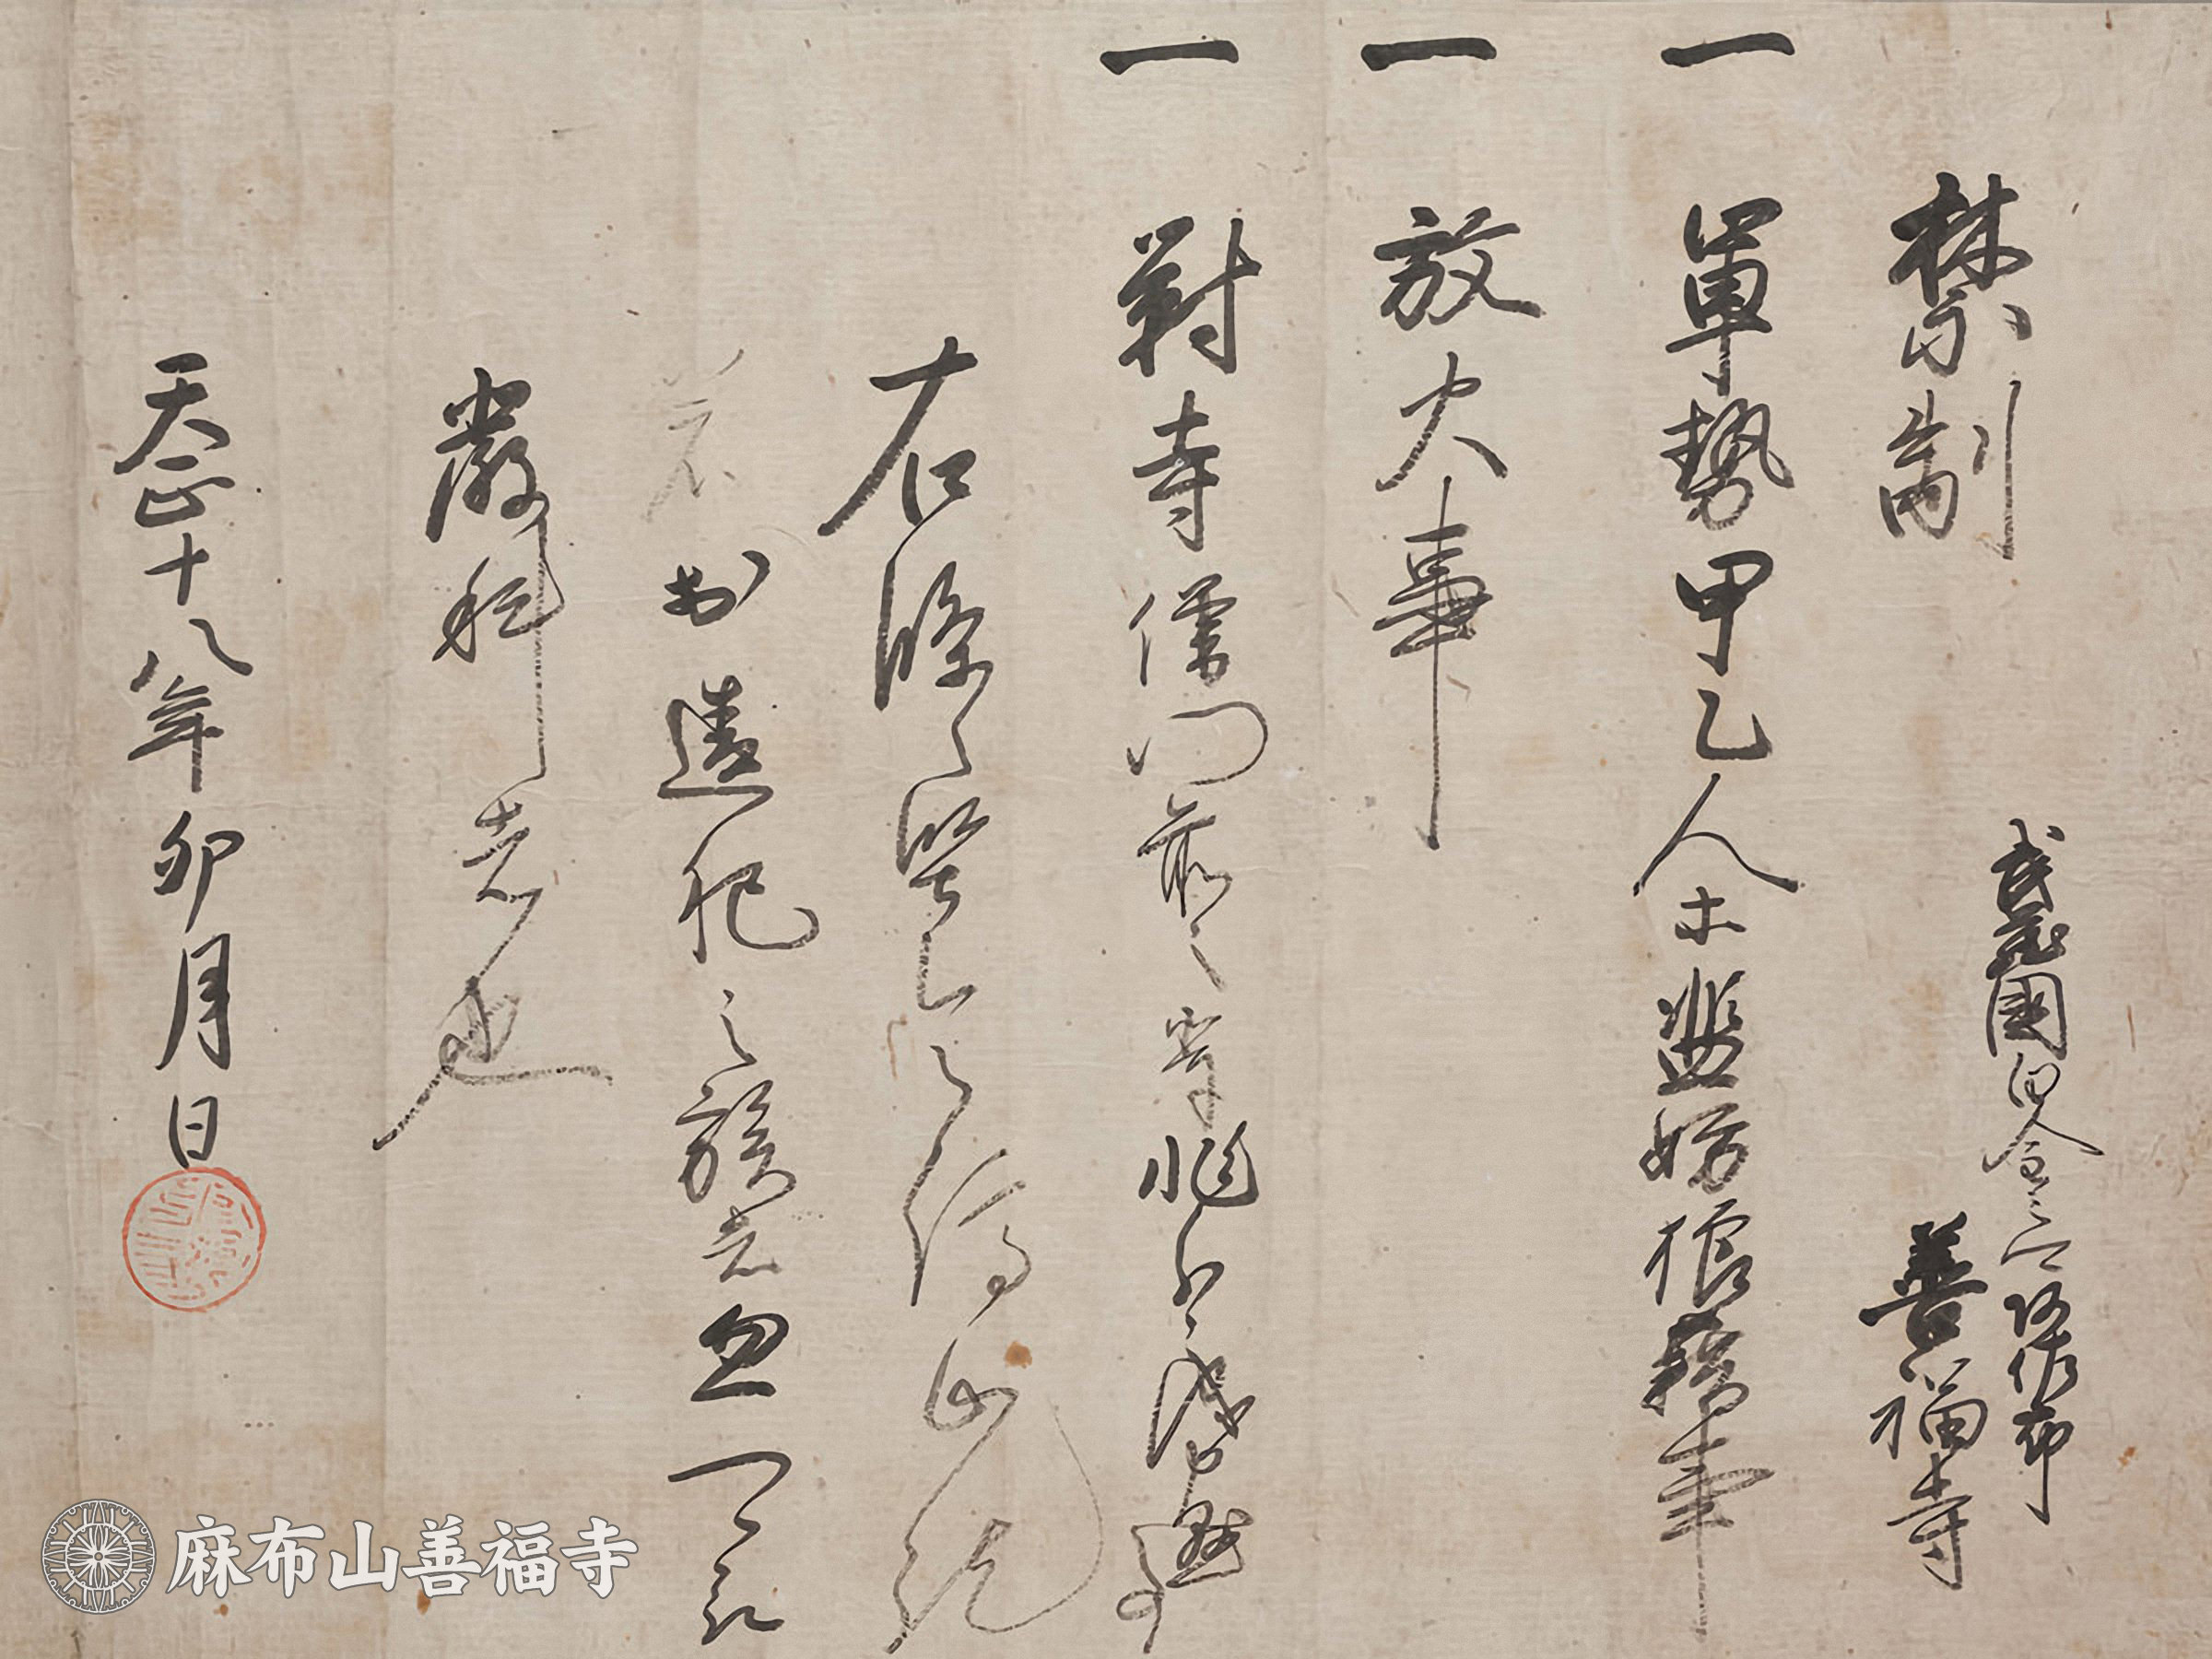 禁制
武蔵国
善福寺
一 軍勢甲乙人等濫妨狼藉事
一 放火事
一 對寺僧門前之輩非分之儀
右條々堅令停止訖
若於違犯之族者忽可
嚴科者也
天正十八年卯月日
麻布山善福寺